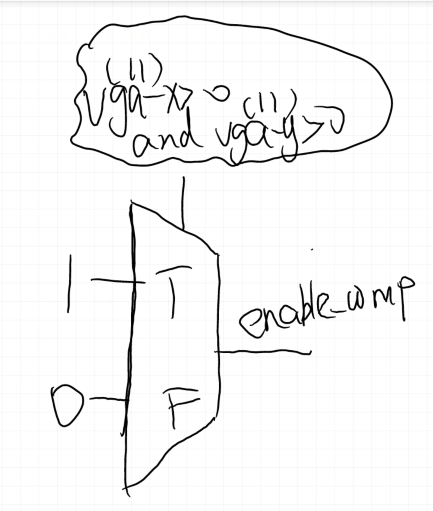 (11) (11)
vga-x>0
and vga-y>0
1 T
enable_comp
0 F